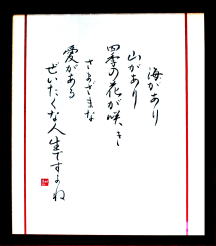 海があり
山があり
四季の花が咲き
さまざまな
愛がある
ぜいたくな人生ですよね